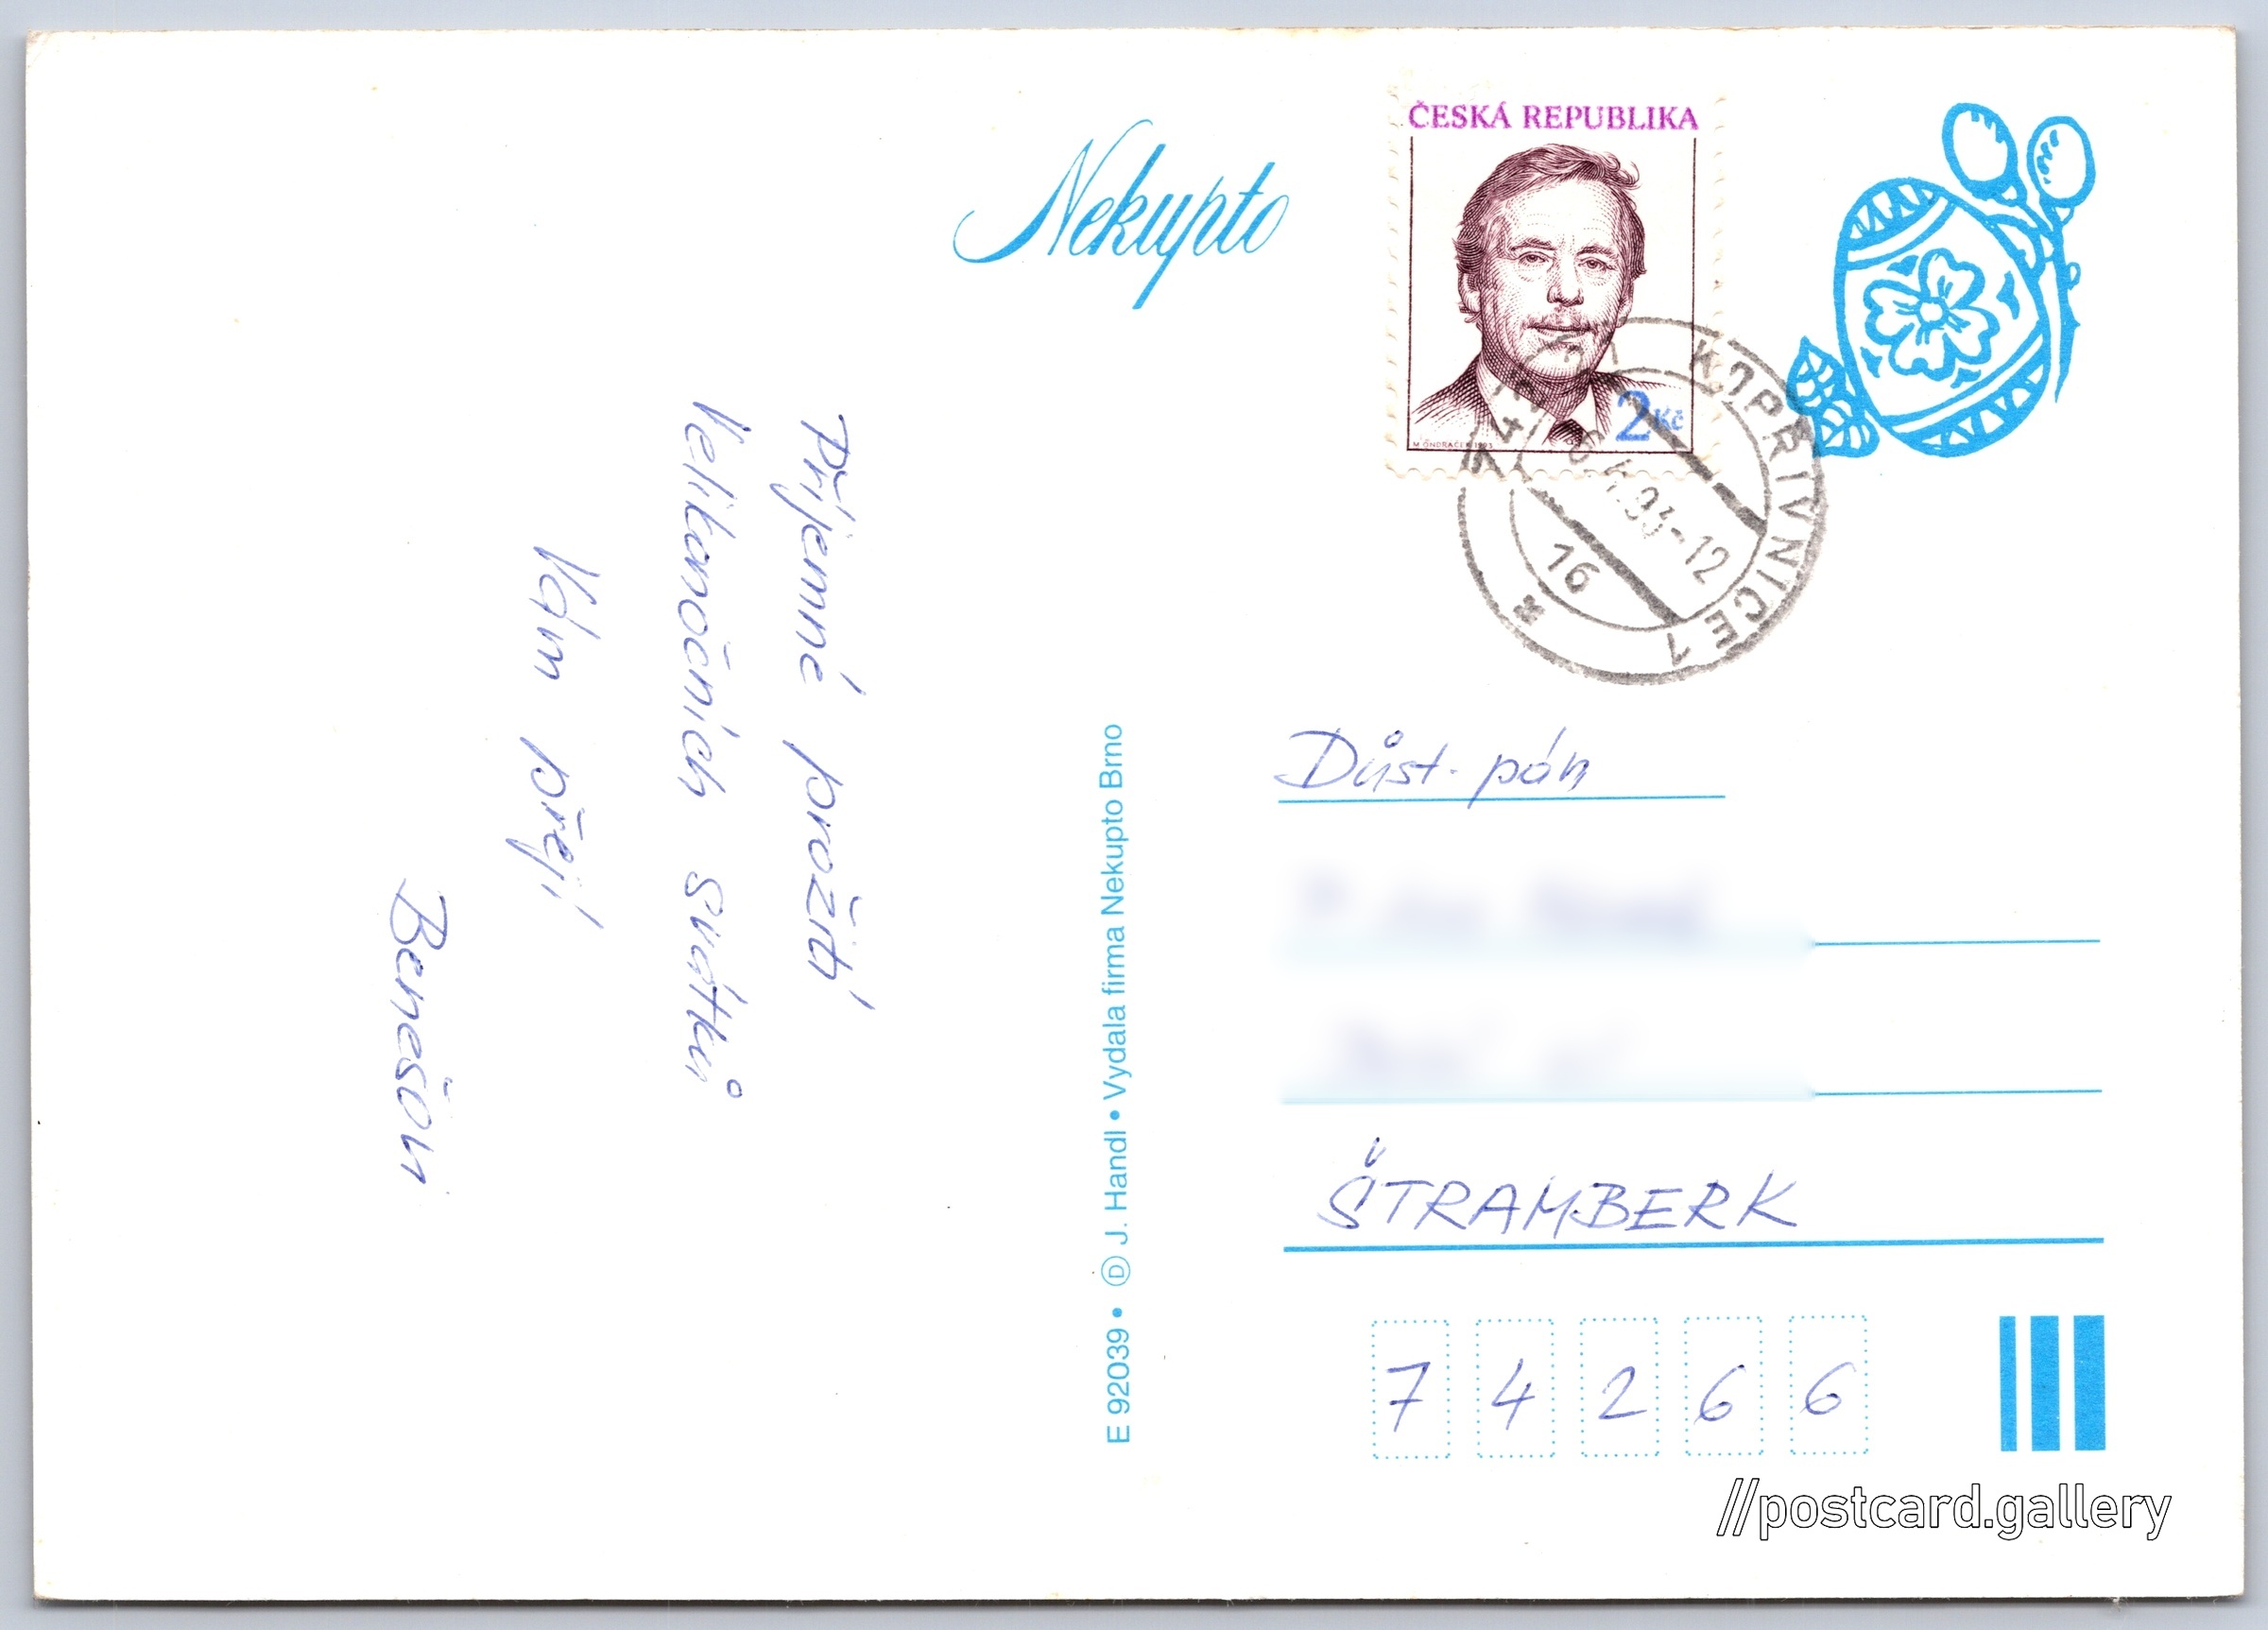 Nekupto
ČESKÁ REPUBLIKA
2 Kč
M. ONDRÁČEK 1993
KOPŘIVNICE 1
-12
16
Příjemné prožití
Velikonočních svátků
Vám přejí
Benešovi
E 92039 • Ⓓ J. Handl • Vydala firma Nekupto Brno
Důst. pán
ŠTRAMBERK
7 4 2 6 6
//postcard.gallery